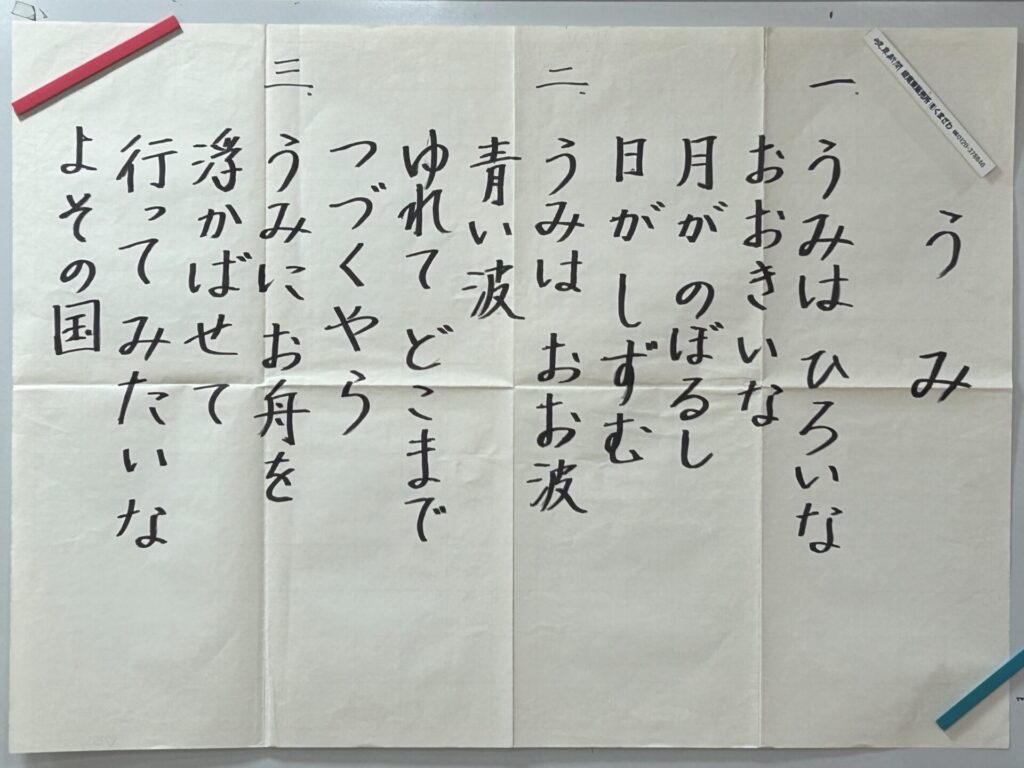 うみ
一、うみは ひろいな
おおきいな
月が のぼるし
日が しずむ
二、うみは おお波
青い波
ゆれて どこまで
つづくやら
三、うみに お舟を
浮かばせて
行って みたいな
よその国